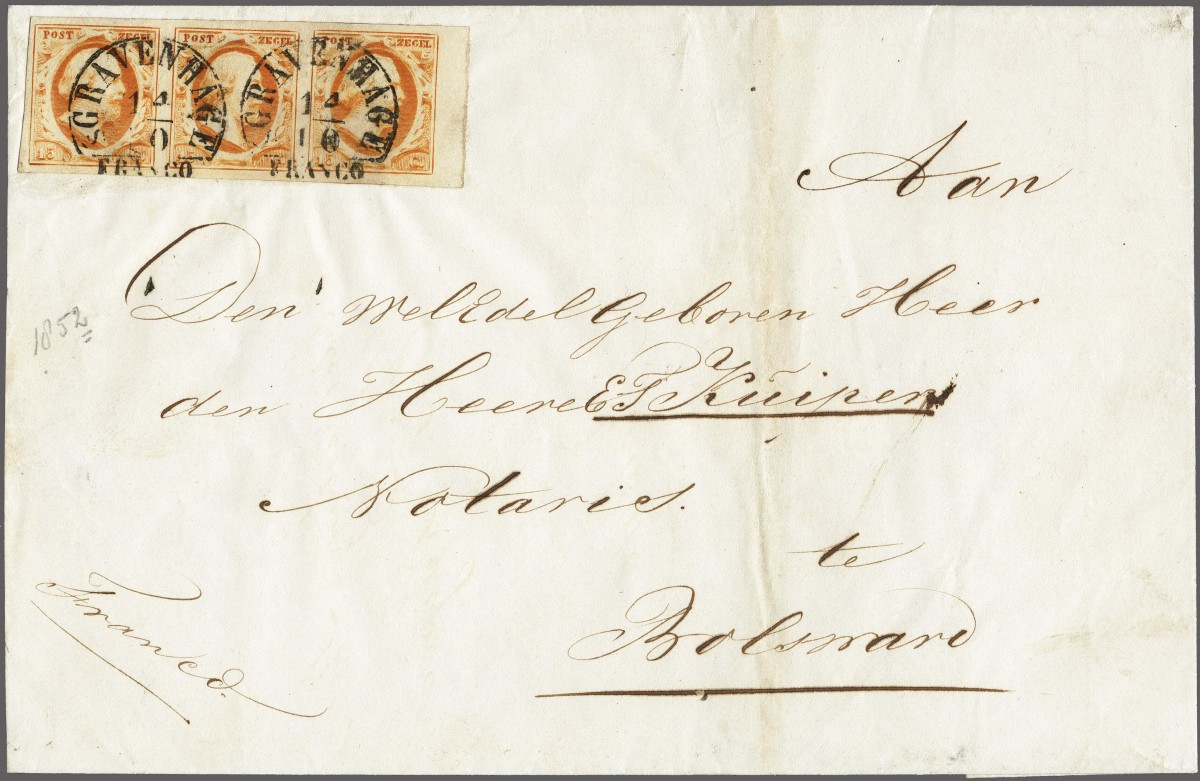 POST ZEGEL POST ZEGEL POST ZEGEL
'SGRAVENHAGE 'SGRAVENHAGE
14 14
10 10
15
FRANCO FRANCO
Aan
Den WelEdelGeboren Heer
1852
den Heere E T Kuiper
Notaris.
te
Franco.
Bolsward